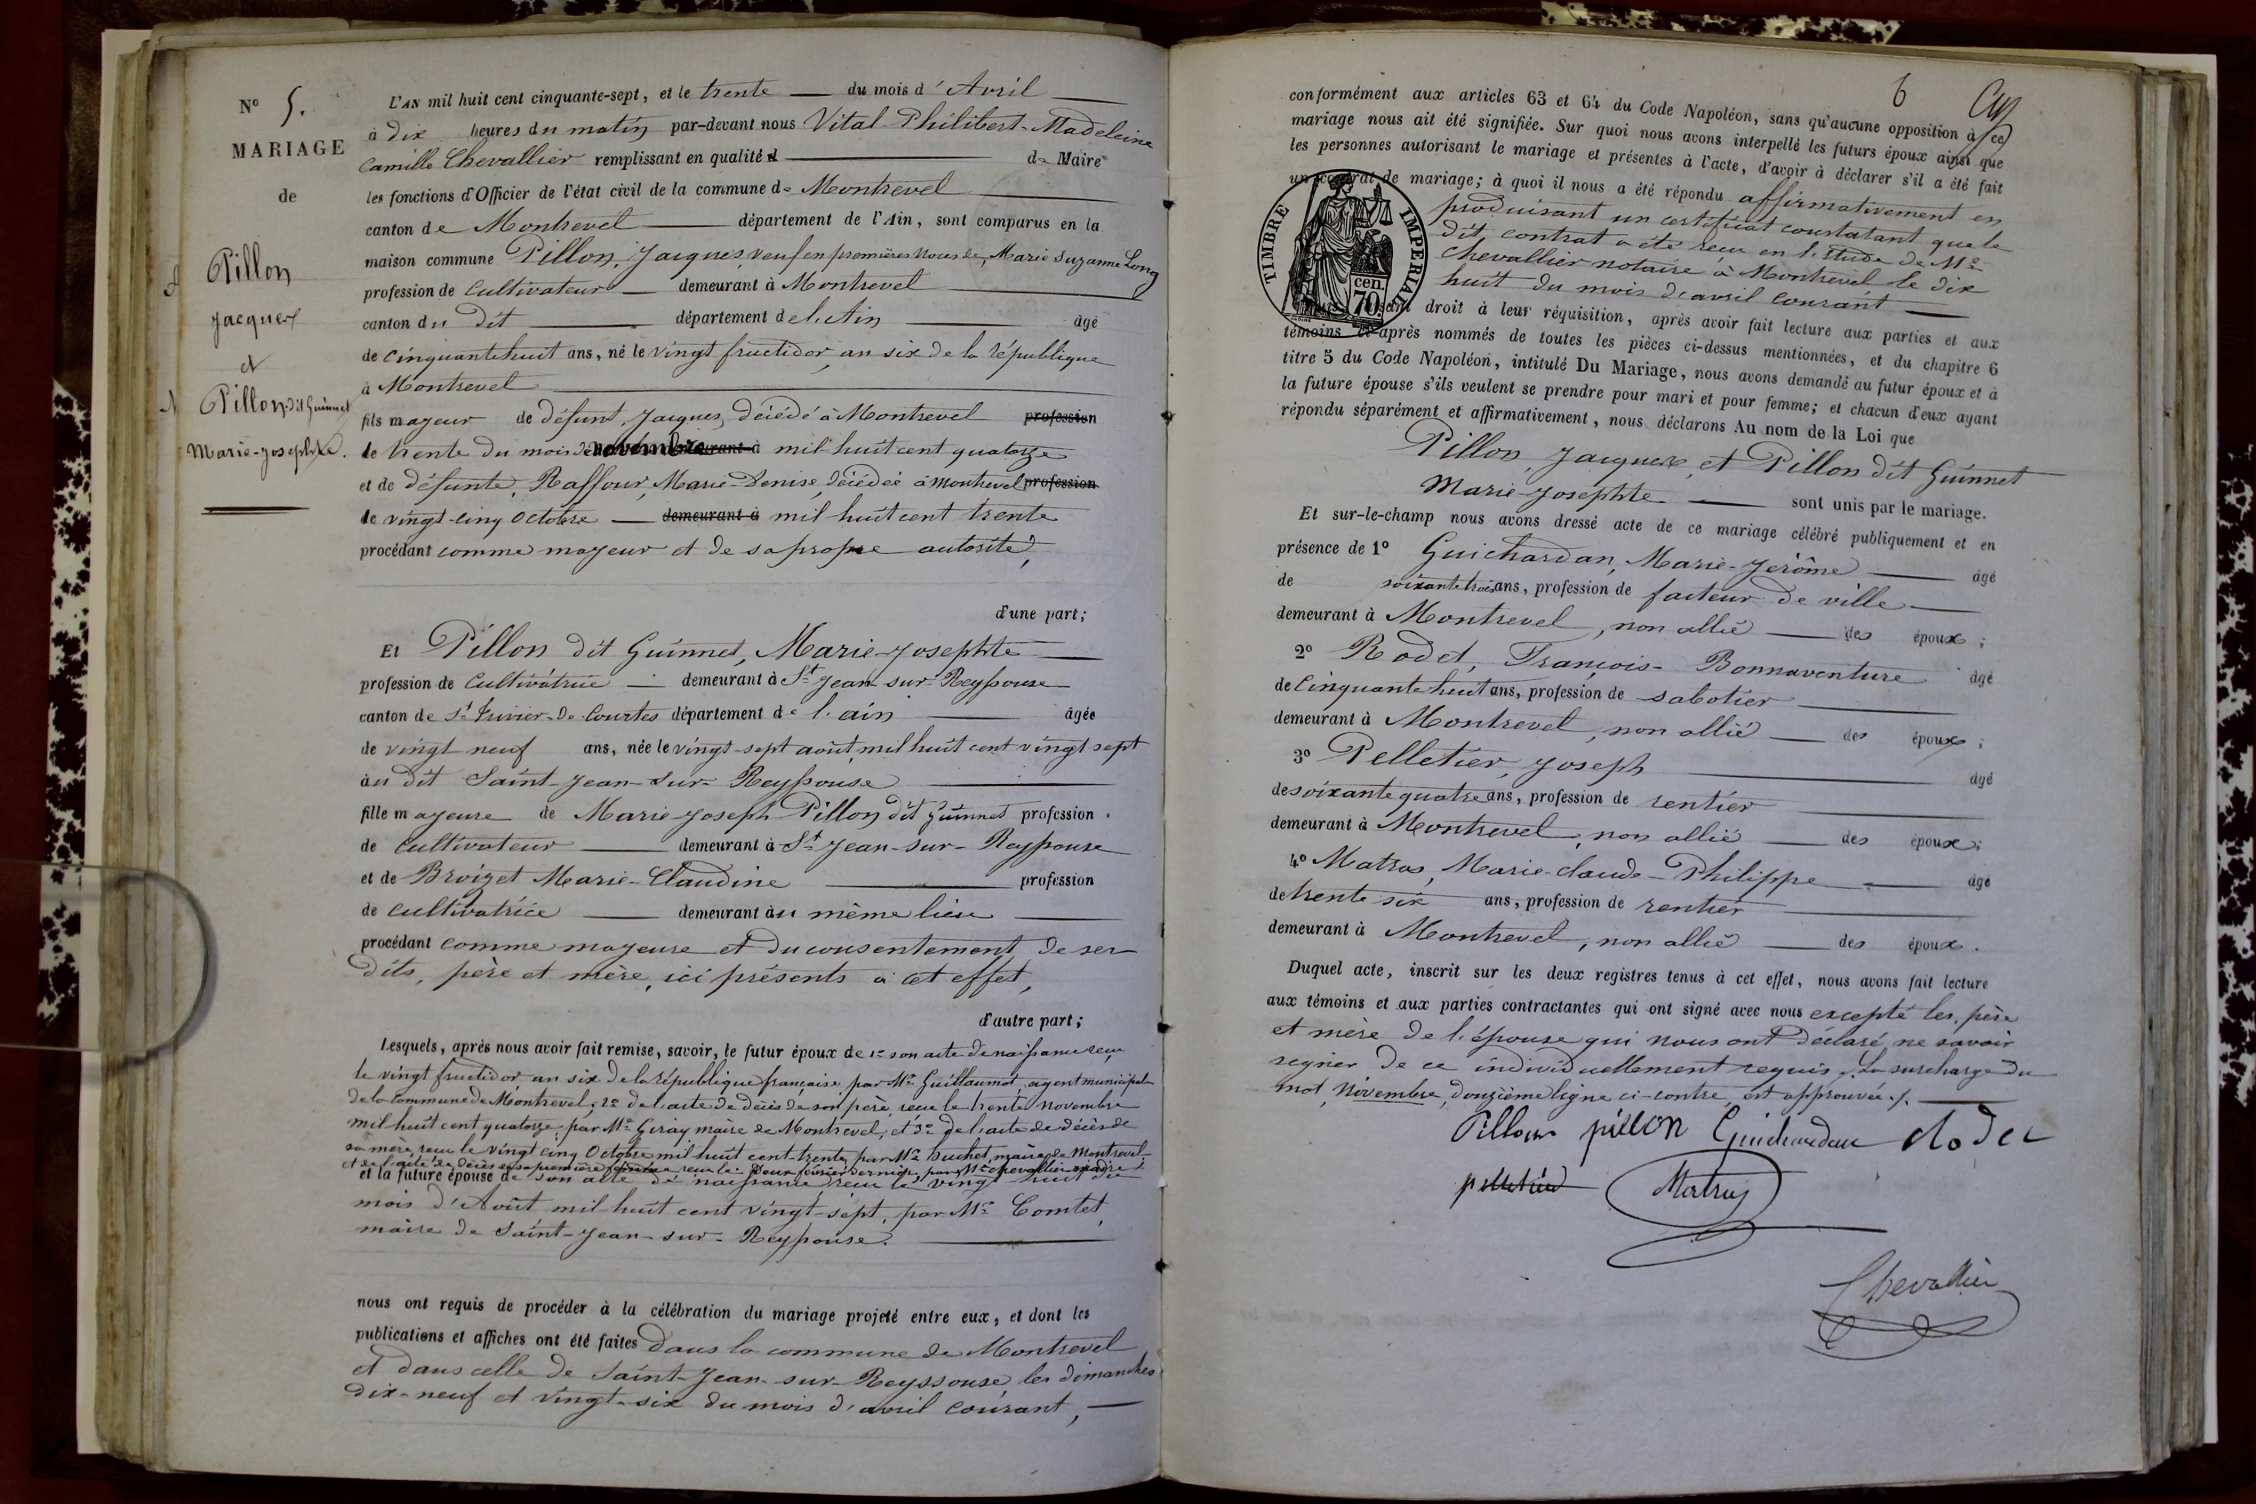 N° 5.
MARIAGE
de
Pillon
Jacques
et
Pillon dit Guinnet
Marie-Josephte.
L'AN mil huit cent cinquante-sept, et le trente du mois d'Avril
à dix heures du matin par-devant nous Vital-Philibert-Madeleine
Camille Chevallier remplissant en qualité d de Maire
les fonctions d'Officier de l'état civil de la commune de Montrevel
canton de Montrevel département de l'Ain, sont comparus en la
maison commune Pillon, Jacques, veuf en premières noces de, Marie Suzanne Long
profession de Cultivateur demeurant à Montrevel
canton du dit département de l'Ain âgé
de Cinquante huit ans, né le vingt fructidor, an six de la république
à Montrevel
fils mayeur de défunt, Jacques, décédé à Montrevel profession
le trente du mois de novembre demeurant à mil huit cent quatorze
et de défunte, Raffour, Marie-Denise, décédée à Montrevel profession
le vingt-cinq Octobre demeurant à mil huit cent trente
procédant comme mayeur et de sa propre autorité,
d'une part;
Et Pillon dit Guinnet, Marie-Josephte
profession de Cultivatrice demeurant à St Jean-sur-Reyssouse
canton de St Trivier-de-Courtes département de l'ain âgée
de vingt neuf ans, née le vingt-sept août, mil huit cent vingt sept
au dit Saint-Jean-sur-Reyssouse
fille mayeure de Marie-Joseph Pillon dit Guinnet profession
de Cultivateur demeurant à St Jean-sur-Reyssouse
et de Broizet Marie-Claudine profession
de cultivatrice demeurant au même lieu
procédant comme mayeure et du consentement de ses
dits, père et mère, ici présents à cet effet,
d'autre part;
Lesquels, après nous avoir fait remise, savoir, le futur époux de 1° son acte de naissance reçu
le vingt fructidor an six de la république française, par Mr Guillaumot, agent municipal
de la Commune de Montrevel; 2° de l'acte de décès de son père, reçu le trente novembre
mil huit cent quatorze, par Mr Giray maire de Montrevel; et 3° de l'acte de décès de
sa mère, reçu le vingt cinq Octobre mil huit cent trente, par Mr Buchet, maire de Montrevel
et de l'acte de décès de sa première femme reçu le deux février dernier, par Mr Chevallier maire
et la future épouse de son acte de naissance, reçu le vingt huit du
mois d'Août mil huit cent vingt-sept, par Mr Comtet,
maire de Saint-Jean-sur-Reyssouse.
nous ont requis de procéder à la célébration du mariage projeté entre eux, et dont les
publications et affiches ont été faites dans la commune de Montrevel
et dans celle de Saint-Jean-sur-Reyssouse, les dimanches
dix-neuf et vingt-six du mois d'avril courant,
6
conformément aux articles 63 et 64 du Code Napoléon, sans qu'aucune opposition à ce
mariage nous ait été signifiée. Sur quoi nous avons interpellé les futurs époux ainsi que
les personnes autorisant le mariage et présentes à l'acte, d'avoir à déclarer s'il a été fait
un contrat de mariage; à quoi il nous a été répondu affirmativement en
produisant un certificat constatant que le
dit contrat a été reçu en l'étude de Me
Chevallier notaire à Montrevel le dix
huit du mois d'avril courant
TIMBRE IMPERIAL
70 cen.
droit à leur réquisition, après avoir fait lecture aux parties et aux
témoins ci-après nommés de toutes les pièces ci-dessus mentionnées, et du chapitre 6
titre 5 du Code Napoléon, intitulé Du Mariage, nous avons demandé au futur époux et à
la future épouse s'ils veulent se prendre pour mari et pour femme; et chacun d'eux ayant
répondu séparément et affirmativement, nous déclarons Au nom de la Loi que
Pillon, Jacques, et Pillon dit Guinnet
Marie-Josephte sont unis par le mariage.
Et sur-le-champ nous avons dressé acte de ce mariage célébré publiquement et en
présence de 1° Guichardan, Marie-Jérôme âgé
de soixante trois ans, profession de facteur de ville
demeurant à Montrevel, non allié des époux;
2° Rodet, François-Bonnaventure âgé
de Cinquante huit ans, profession de sabotier
demeurant à Montrevel, non allié des époux;
3° Pelletier, Joseph âgé
de soixante quatre ans, profession de rentier
demeurant à Montrevel, non allié des époux;
4° Matras, Marie-Claude-Philippe âgé
de trente six ans, profession de rentier
demeurant à Montrevel, non allié des époux.
Duquel acte, inscrit sur les deux registres tenus à cet effet, nous avons fait lecture
aux témoins et aux parties contractantes qui ont signé avec nous excepté les, père
et mère de l'épouse qui nous ont déclaré ne savoir
signer de ce individuellement requis. La surcharge du
mot, Novembre, douzième ligne ci-contre, est approuvée ./.
Pillon pillon Guichardan Rodet
pelletier Matras
Chevallier